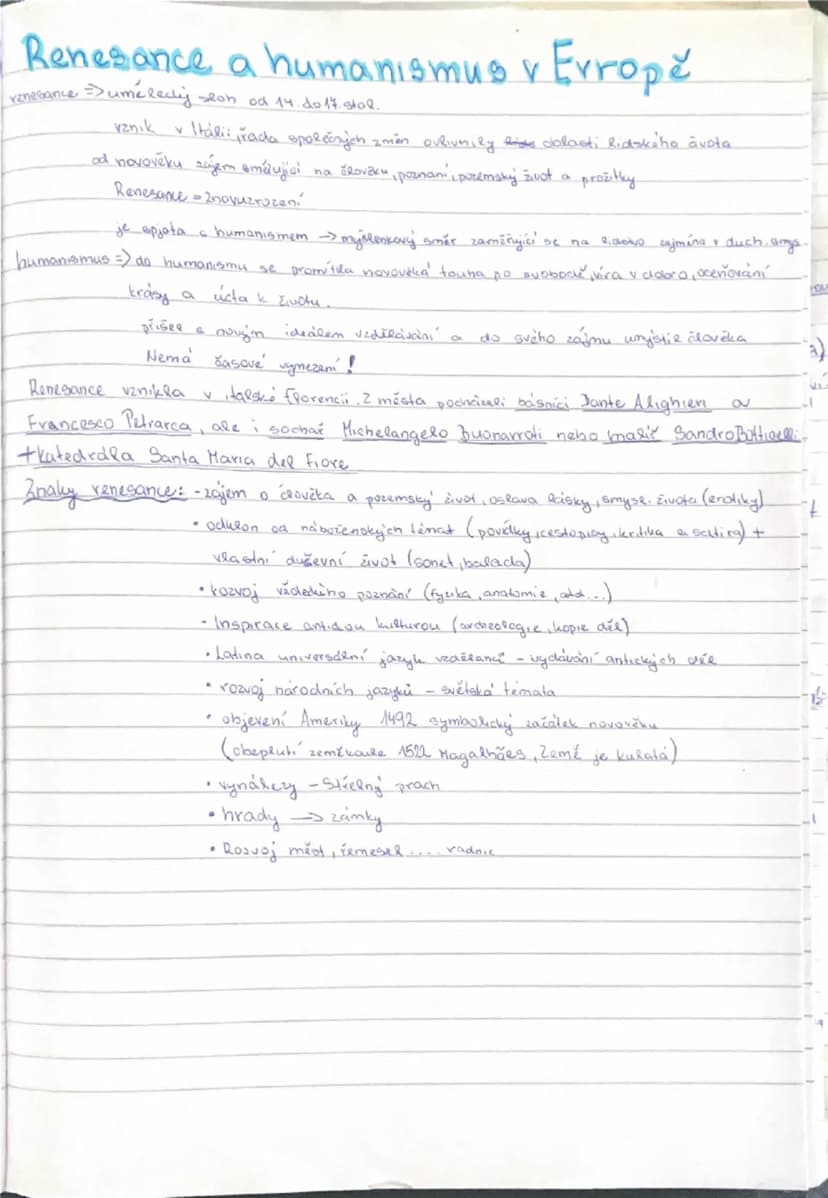 Renesance a humanismus v Evropě
renesance => umělecký sloh od 14. do 17. stol.
vznik v Itálii, řada společných změn ovlivnily oblasti lidského života
od novověku zájem směřující na člověku, poznání, pozemský život a prožitky
Renesance = znovuzrození
je spjata s humanismem → myšlenkový směr zaměřující se na lidstvo zejména v duch. smys.
humanismus => do humanismu se promítla novověká touha po svobodě, víra v dobro, oceňování
krásy a úcta k životu.
přišel s novým ideálem vzdělávání a do svého zájmu umístil člověka
Nemá časové vymezení!
Renesance vznikla v italské Florencii. Z města pocházeli básníci Dante Alighieri a
Francesco Petrarca, ale i sochař Michelangelo Buonarroti nebo malíř Sandro Botticelli
+ katedrála Santa Maria del Fiore
Znaky renesance: - zájem o člověka a pozemský život, oslava lásky, smysl. života (erotiky)
• odklon od náboženských témat (povídky, cestopisy, kritika a satira) +
vlastní duševní život (sonet, balada)
• rozvoj vědeckého poznání (fyzika, anatomie, atd...)
- Inspirace antickou kulturou (archeologie, kopie děl)
• Latina universální jazyk vzdělanců - vydávání antických děl
• rozvoj národních jazyků - světská témata
• objevení Ameriky 1492 symbolický začátek novověku
(obeplutí zeměkoule 1522 Magalhães, Země je kulatá)
• vynálezy - Střelný prach
• hrady → zámky
• Rozvoj měst, řemesel .... radnic